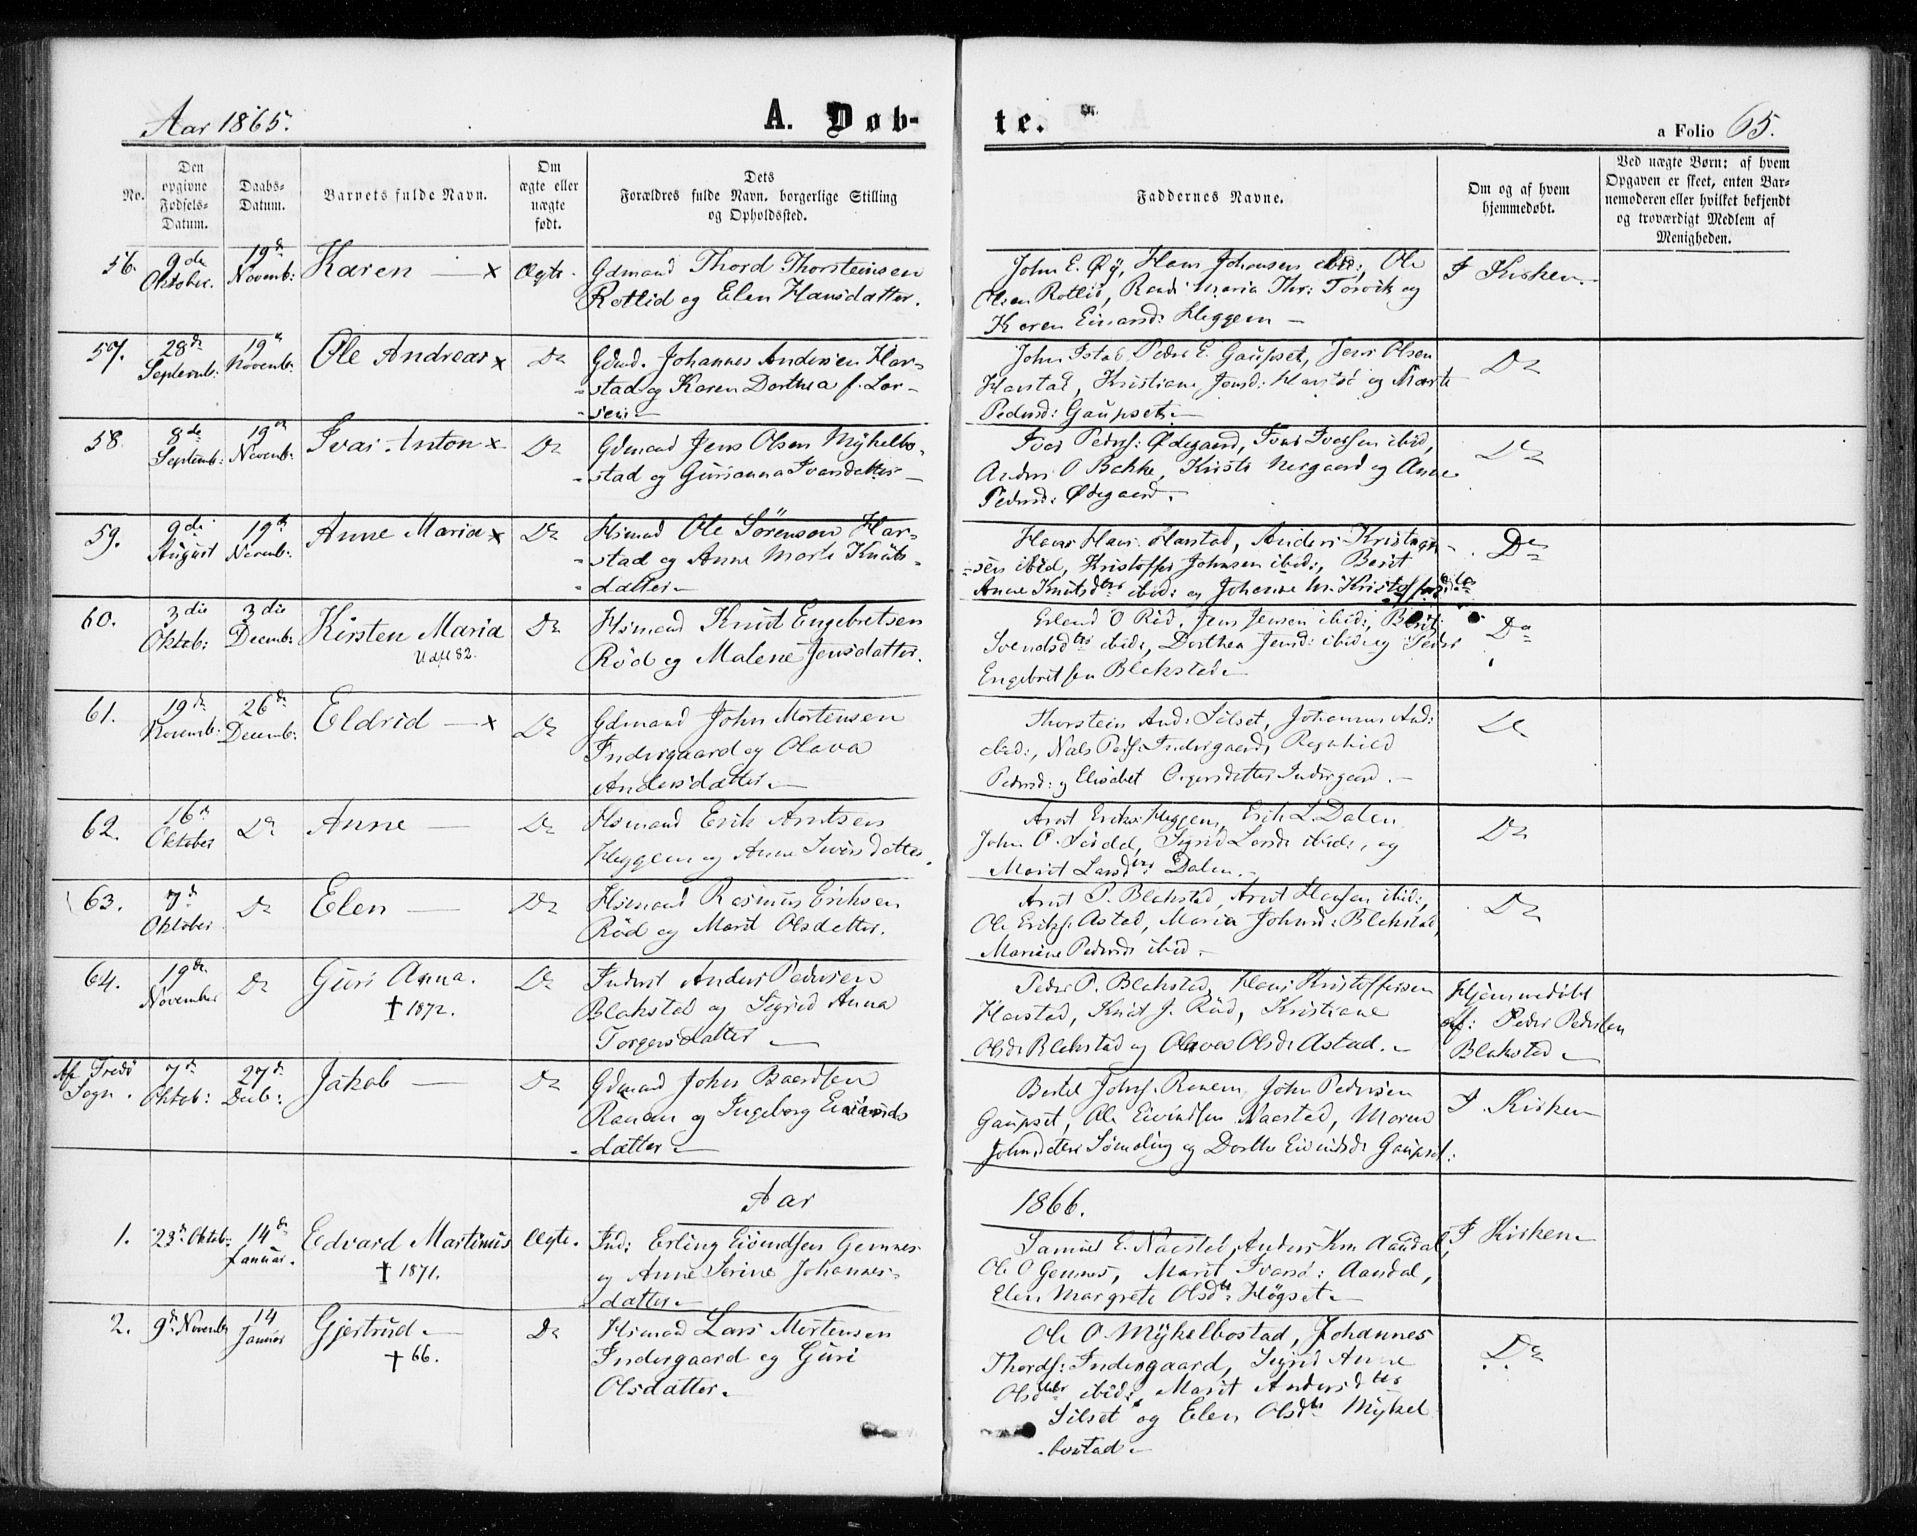 Aar 1865.
A. Døb-
te.
a Folio 65.
No.
Den opgivne Fødsels-Datum.
Daabs-Datum.
Barnets fulde Navn.
Om ægte eller uægte født.
Dets Forældres fulde Navn, borgerlige Stilling og Opholdssted.
Faddernes Navne.
Om og af hvem hjemmedøbt.
Ved uægte Børn: af hvem Opgaven er skeet, enten Bar-nemoderen eller hvilket bekjendt og troværdigt Medlem af Menigheden.
56. 9de Oktober. 19de Novemb: Karen — x Ægte.
Gdmand Thord Thorsteinsen
Rotlid og Elen Hansdatter.
John E. Øÿ, Hans Johansen ibid:, Ole
Olsen Rotlid, Maria Thr: Torvik og
Karen Einarsd: Heggem —
I Kirken.
57. 28de Septemb: 19de Novemb: Ole Andreas x Do
Gdmd. Johannes Andersen Har-
-stad og Karen Dorthea f. Lar-
-sen —
John Istad, Peder E. Gaupset, Jens Olsen
Harstad, Kristiane Jonsd: Harstad og Marte
Pedersd: Gaupset. —
Do
58. 8de Septemb: 19de Novemb: Ivar Anton x Do
Gdmand Jens Olsen Mykelbo-
-stad og Gurianna Ivarsdatter —
Iver Peders: Ødegaard, Ivar Iversen ibid,
Anders O Bakke, Kirsti Nergaard og Anne
Pedersd: Ødegaard.
Do
59. 9de August 19de Novemb: Anne Maria x Do
Hsmand Ole Sørensen Har-
-stad og Anne Marta Knuts-
-datter —
Hans Hans. Harstad, Anders Kristian-
-sen ibid, Kristoffer Johnsen ibid:, Berit
Anne Knutsdtr ibid: og Johanne M. Kristoffersd
Do
60. 3die Oktob: 3die Decemb: Kirsten Maria Do
Udfl 82.
Hsmand Knut Engebretsen
Rød og Malene Jensdatter.
Erland O Rød, Jens Jensen ibid:, Berit
Svendsdtr ibid:, Dorthea Jensd: ibid: og Peder
Engebretsen Blakstad —
Do
61. 19de Novemb: 26de Decemb: Eldrid — x Do
Gdmand John Mortensen
Indergaard og Olava
Andersdatter —
Thorstein And: Silset, Johannes And:
ibid:, Nels Peders: Indergaard, Ragnhild
Pedersd: og Elisabet Indergaard. —
Do
62. 16de Oktober Do Anne — Do
Hsmand Erik Arntsen
Heggem og Anne Iversdatter.
Arnt Eriks. Heggem, Erik L. Dalen
John P. , Sigrid Larsd: ibid:, og
Marit Larsdtr Dalen. —
Do
63. 7de Oktober Do Elen — Do
Hsmand Rasmus Eriksen
Rød og Marit Olsdatter.
Arnt P. Blakstad, Arnt Hansen ibid:,
Ole Eriks. Astad, Maria Johnsd: Blakstad,
Mariene Pedersd: ibid —
Do
64. 19de November Do Guri Anna. Do
† 1872.
Inderst Anders Pedersen
Blakstad og Sigrid Anna
Torgersdatter —
Peder P. Blakstad, Hans Kristoffersen
Harstad, Knut J. Rød, Kristiane
Olsd: Blakstad og Olave Olsd: Astad. —
Hjemmedøbt
af: Peder Pedersen
Blakstad —
Af Tredø Sogn. 7de Oktob: 27de Decb: Jakob — Do
Gdmand John Baardsen
Ranem og Ingeborg Eivinds
-datter —
Bertel Johns. Ranem, John Pedersen
Gaupset, Ole Eivindsen Naastad, Maren
Johnsdatter og Dorthe Eivindsd: Gaupset:
I Kirken
Aar
1866.
1. 23de Oktob: 14de Januar. Edvard Martinus Ægte.
† 1871.
Ind: Erling Eivindsen Gemnes
og Anne Serine Johannes-
-datter —
Samuel E. Naastad, Anders Kn. Aandal,
Ole O Gemnes, Marit Ivarsd: Aandal,
Elen Margrete Olsdtr Høgset —
I Kirken
2. 9de November 14 Januar Gjertrud — Do
† 66.
Hsmand Lars Mortensen
Indergaard og Guri
Olsdatter —
Ole O Mykelbostad, Johannes
Thords: Indergaard, Sigrid Anne
Olsdatter ibid:, Marit Andersdtr
Silset og Elen Olsdtr Mykel
-bostad —
Do